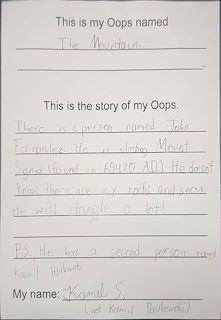 This is my Oops named
The Mountain.
.
This is the story of my Oops.
There is a person named John
Fernandez. He is climbing Mount
Sigma (found in 69420 AD.) He doesn't
know there are icy rocks and snow.
He will struggle a lot!
P.S. He has a second person named
Kamil Pawlowski
My name: Kamil S.
(not Kamil Pawlowski)